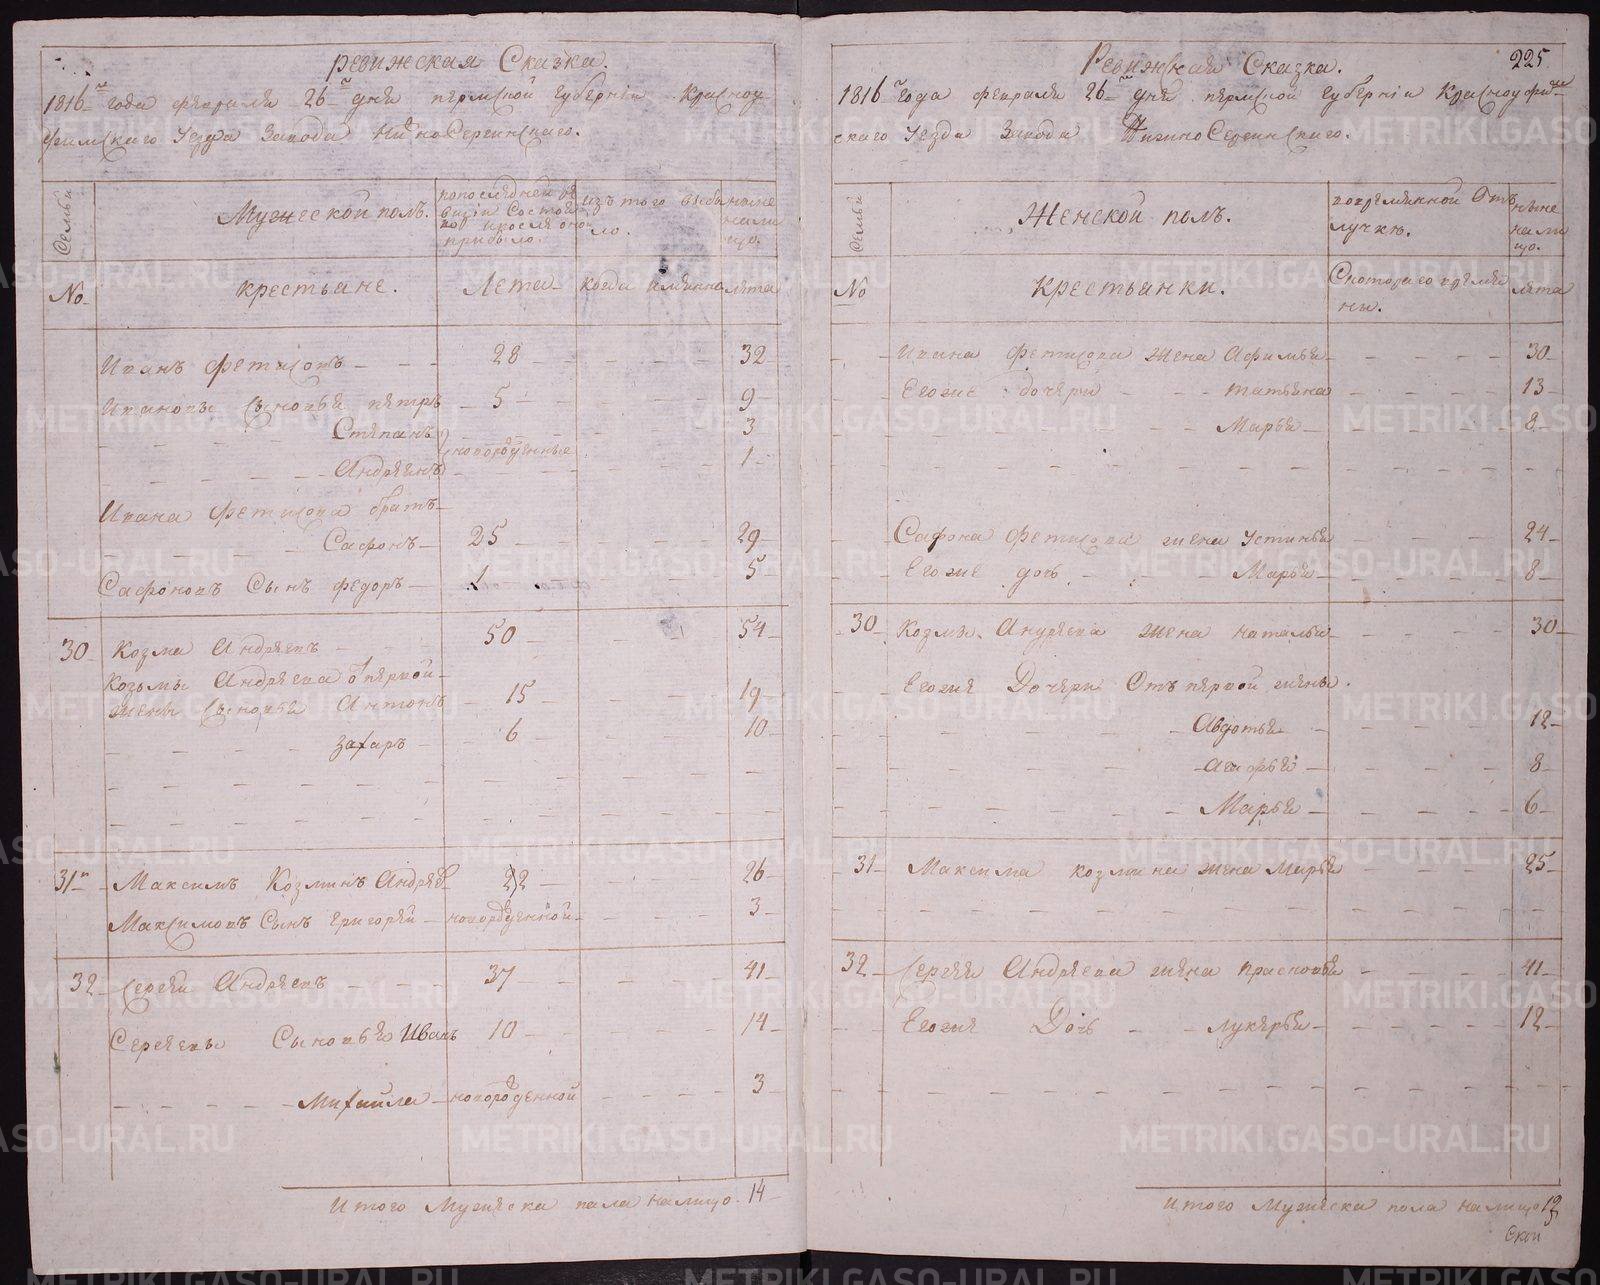 Ревижская Сказка.
1816го года февраля 26го дня пермской губернiи Красноу
фимскаго Уезда Завода НижноСергинскаго.
Семьи
Мужеской полъ.
изъ того выбы
ло.
ныне
нали
що.
№
крестьяне.
Лета
когда имянно
лята
Иванъ Фетисовъ 28 32
Ивановы сыновья пятръ 5 9
Стяпанъ 3
новорожденные
Андреянъ 1
Ивана Фетисова братъ
Сафонъ 25 29
Сафоновъ Сынъ федоръ 1 5
30 Козма Андреевъ 50 54
Козьмы Андреева о пярвой
жены сыновья Антонъ 15 19
захаръ 6 10
31 Максимъ Козминъ Андреев 22 26
Максимовъ Сынъ григорей новорожденной 3
32 Сергей Андреевъ 37 41
Сергеевы Сыновья Иванъ 10 14
Михайла новорожденной 3
Итого Мужеска пола налищо 14
225
Ревижская Сказка.
1816го года февраля 26го дня пермской губернiи Красноуфим
скаго Уезда Завода НижноСергинскаго.
Семьи
Женской полъ.
вовремянной Отъ
лучке.
ныне
нали
що.
№
Крестьянки.
Скотораго времяни
ни.
лята
Ивана Фетисова жена Афимья 30
Егожe дочери татьяна 13
Марья 8
Сафона Фетисова жена Устинья 24
Егоже дочь Марья 8
30 Козмы Андреева жена наталья 30
Егожe Дочери Отъ пярвой жены.
Авдотья 12
Агафья 8
Марья 6
31 Максима козмина жена Марья 25
32 Сергея Андреева жена прасковья 41
Егожe Дочь лукярья 12
Итого Мужеска пола налищо
METRIKI.GASO-URAL.RU